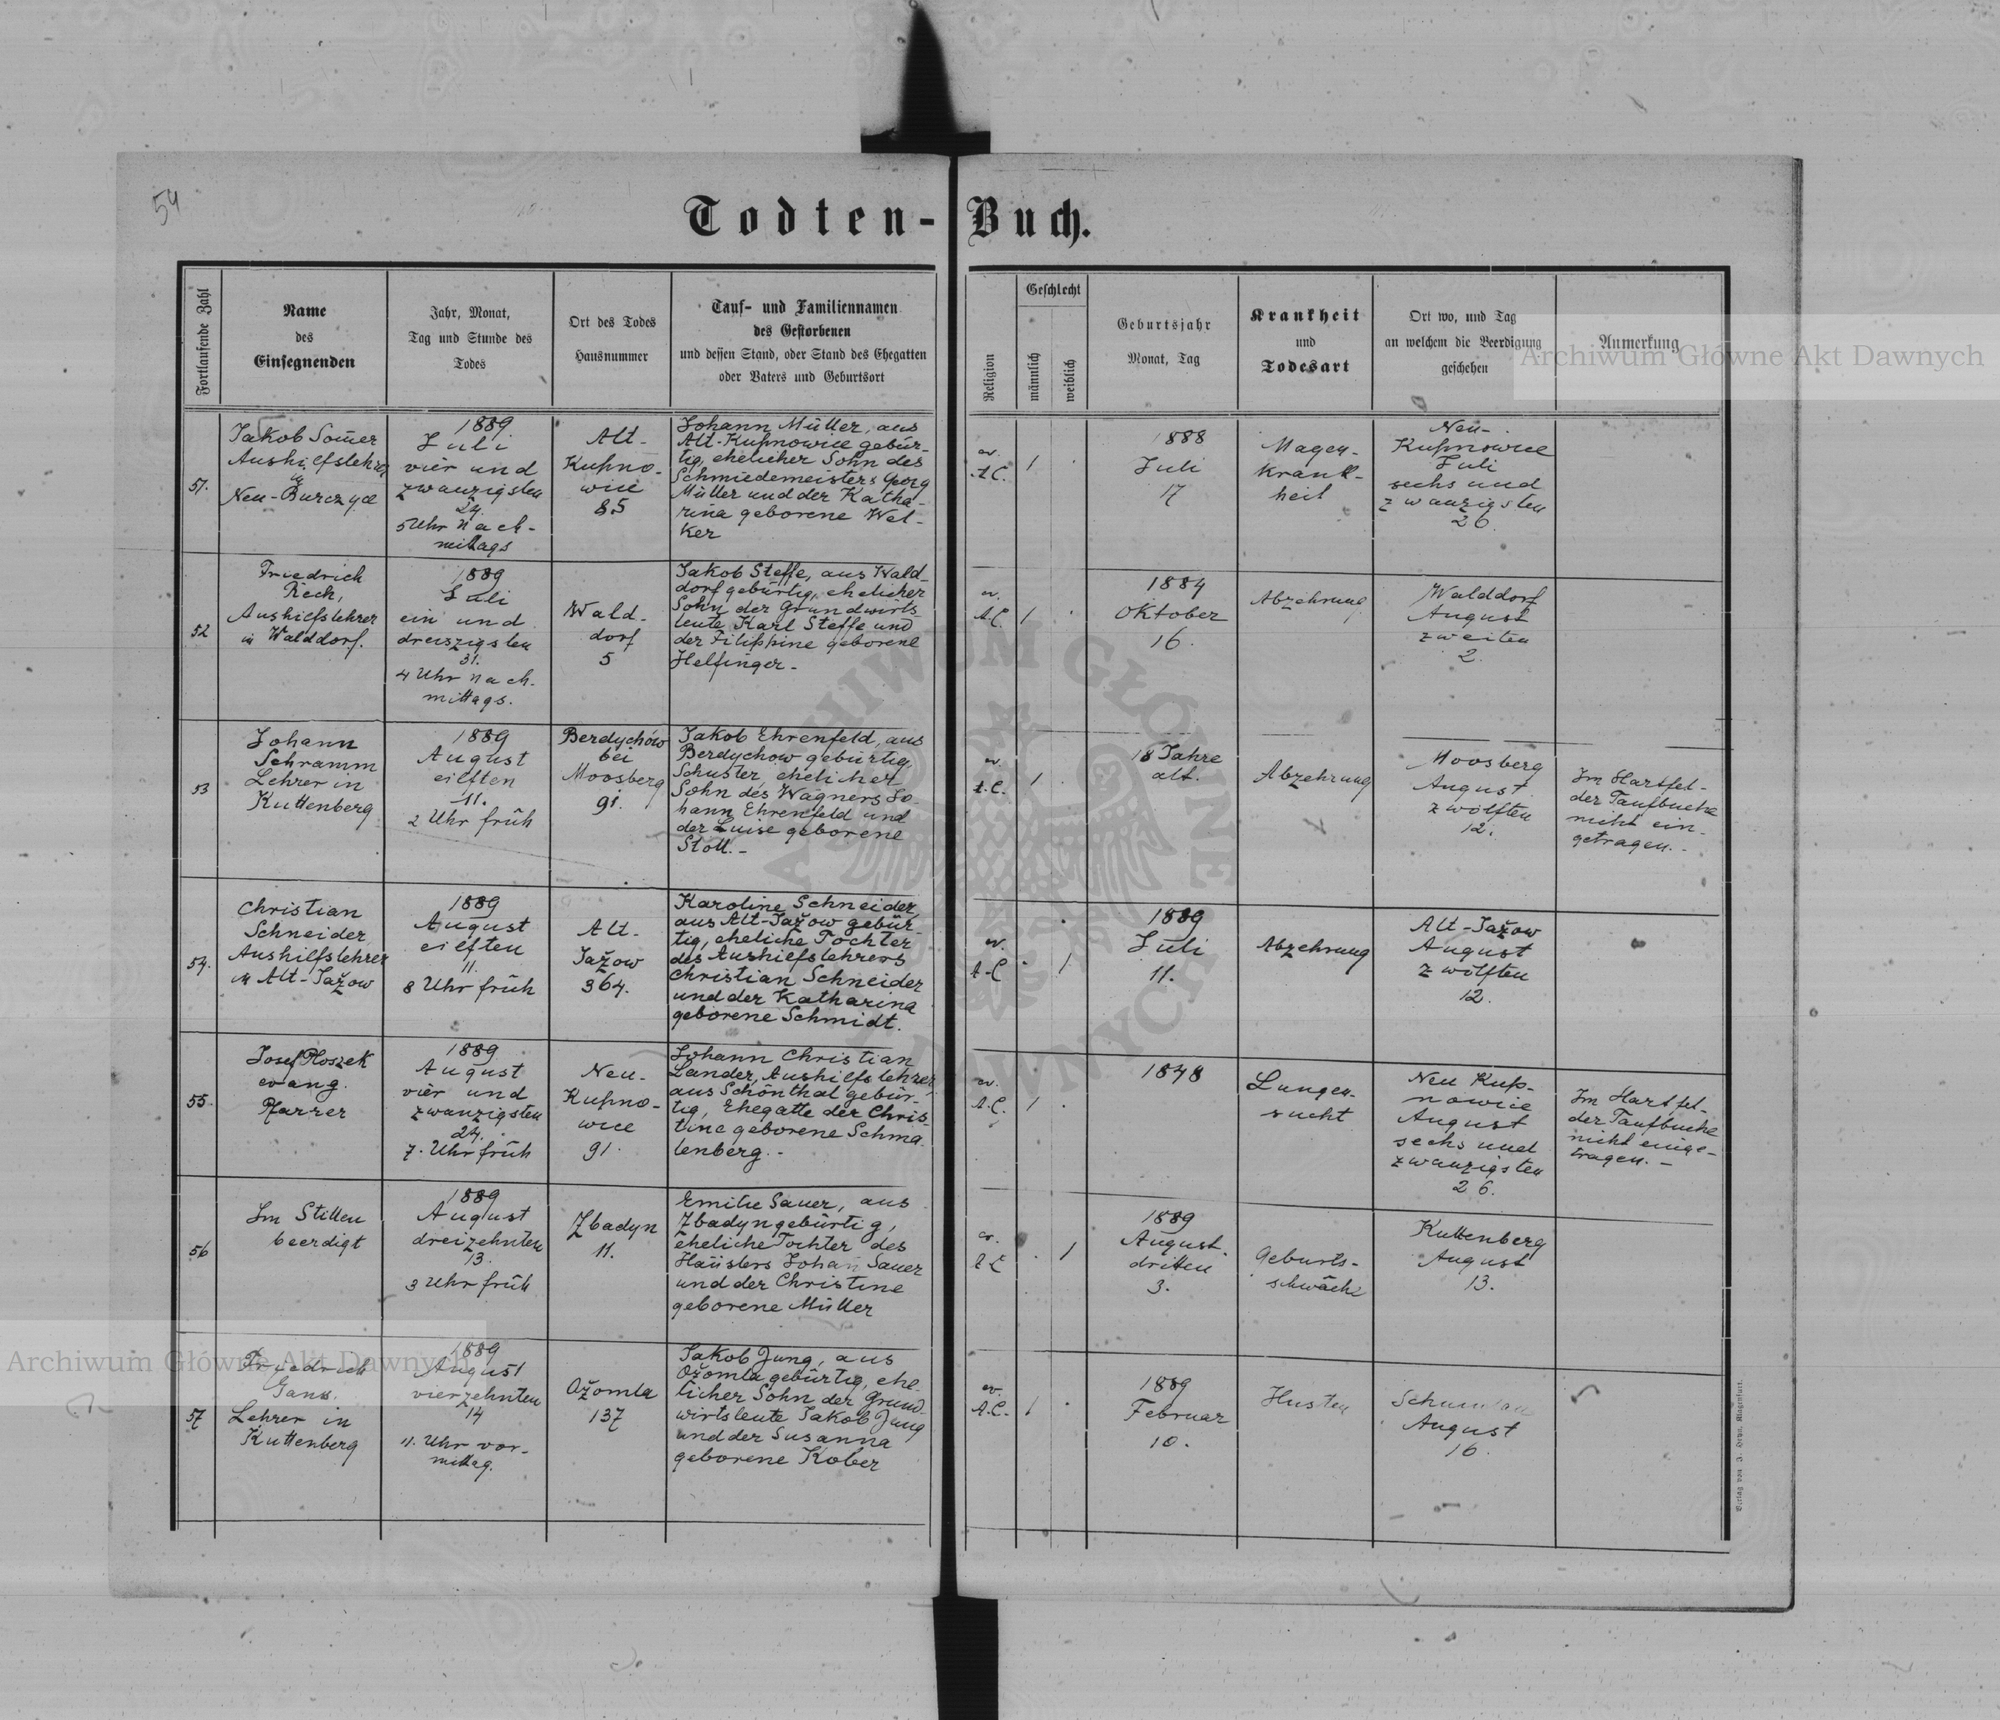 54
Todten-Buch.
Fortlaufende Zahl
Name
des
Einsegnenden
Jahr, Monat,
Tag und Stunde des
Todes
Ort des Todes
Hausnummer
Tauf- und Familiennamen
des Gestorbenen
und dessen Stand, oder Stand des Ehegatten
oder Vaters und Geburtsort
Religion
Geschlecht
männlich
weiblich
Geburtsjahr
Monat, Tag
Krankheit
und
Todesart
Ort wo, und Tag
an welchem die Beerdigung
geschehen
Anmerkung
Archiwum Główne Akt Dawnych
51.
Jakob Som̄er
Aushilfslehrer
in
Neu-Burczyce
1889
Juli
vier und
zwanzigsten
24.
5 Uhr nach-
mittags
Alt-
Kupno-
wice
85
Johann Müller, aus
Alt-Kupnowice gebür-
tig, ehelicher Sohn des
Schmiedemeisters Georg
Müller und der Katha-
rina geborene Wel-
ker
ev.
A.C.
1
1888
Juli
17
Magen-
krank-
heit
Neu-
Kupnowice
Juli
sechs und
zwanzigsten
26.
52
Friedrich
Rech,
Aushilfslehrer
in Walddorf.
1889
Juli
ein und
dreiszigsten
31.
4 Uhr nach-
mittags.
Wald-
dorf
5
Jakob Steffe, aus Wald-
dorf gebürtig, ehelicher
Sohn der Grundwirts
leute Karl Steffe und
der Filippine geborene
Helfinger-
ev.
A.C.
1
1884
Oktober
16.
Abzehrung
Walddorf
August
zweiten
2.
53
Johann
Schramm
Lehrer in
Kuttenberg
1889
August
eilften
11.
2 Uhr früh
Berdychów
bei
Moosberg
91.
Jakob Ehrenfeld, aus
Berdychow gebürtig,
Schuster, ehelicher
Sohn des Wagners Jo-
hann Ehrenfeld und
der Luise geborene
Stoll.-
ev.
A.C.
1
18 Jahre
alt.
Abzehrung
Moosberg
August
zwölften
12.
Im Hartfel-
der Taufbuche
nicht ein-
getragen.-
54.
Christian
Schneider
Aushilfslehrer
in Alt-Jažow
1889
August
eilften
11.
8 Uhr früh
Alt-
Jažow
364.
Karoline Schneider,
aus Alt-Jažow gebür-
tig, eheliche Tochter
des Aushilfslehrers
Christian Schneider
und der Katharina
geborene Schmidt.
ev.
A.C
1
1889
Juli
11.
Abzehrung
Alt-Jažow
August
zwölften
12.
55.
Josef Ploszek
evang.
Pfarrer
1889
August
vier und
zwanzigsten
24.
7. Uhr früh
Neu-
Kupno-
wice
91.
Johann Christian
Lander, Aushilfslehrer
aus Schönthal gebür-
tig, Ehegatte der Chris-
tine geborene Schma-
lenberg.-
ev.
A.C.
1
1848
Lungen-
sucht
Neu Kup-
nowice
August
sechs und
zwanzigsten
26.
Im Hartfel-
der Taufbuche
nicht einge-
tragen.-
56
Im Stillen
beerdigt
1889
August
dreizehnten
13.
3 Uhr früh
Zbadyn
11.
Emilie Sauer, aus
Zbadyn gebürtig,
eheliche Tochter des
Häuslers Johan Sauer
und der Christine
geborene Müller
ev.
A.C
1
1889
August
dritten
3.
Geburts-
schwäche
Kuttenberg
August
13.
57
Friedrich
Gans.
Lehrer in
Kuttenberg
1889
August
vierzehnten
14
11. Uhr vor-
mittag.
Ožomla
137
Jakob Jung, aus
Ožomla gebürtig, ehe-
licher Sohn der Grund-
wirtsleute Jakob Jung
und der Susanna
geborene Kober
ev.
A.C.
1
1889
Februar
10.
Husten
August
16.
Archiwum Główne Akt Dawnych
ARCHIWUM GŁÓWNE AKT DAWNYCH
Verlag von J. Heyn, Klagenfurt.